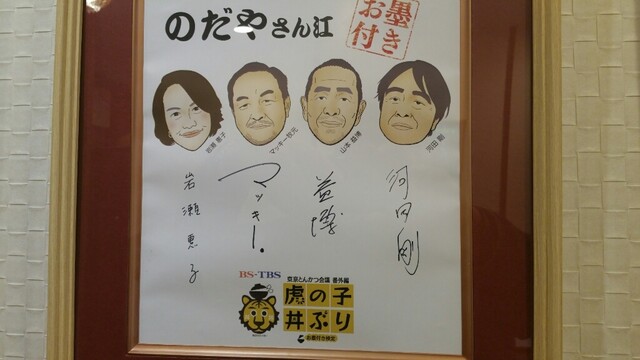 のだやさん江
お墨付き
岩瀬 惠子
マッキー牧元
山本 益博
河田 剛
岩瀬惠子
マッキー.
益博
河田剛
BS-TBS
東京とんかつ会議 番外編
虎の子
丼ぶり
お墨付き検定